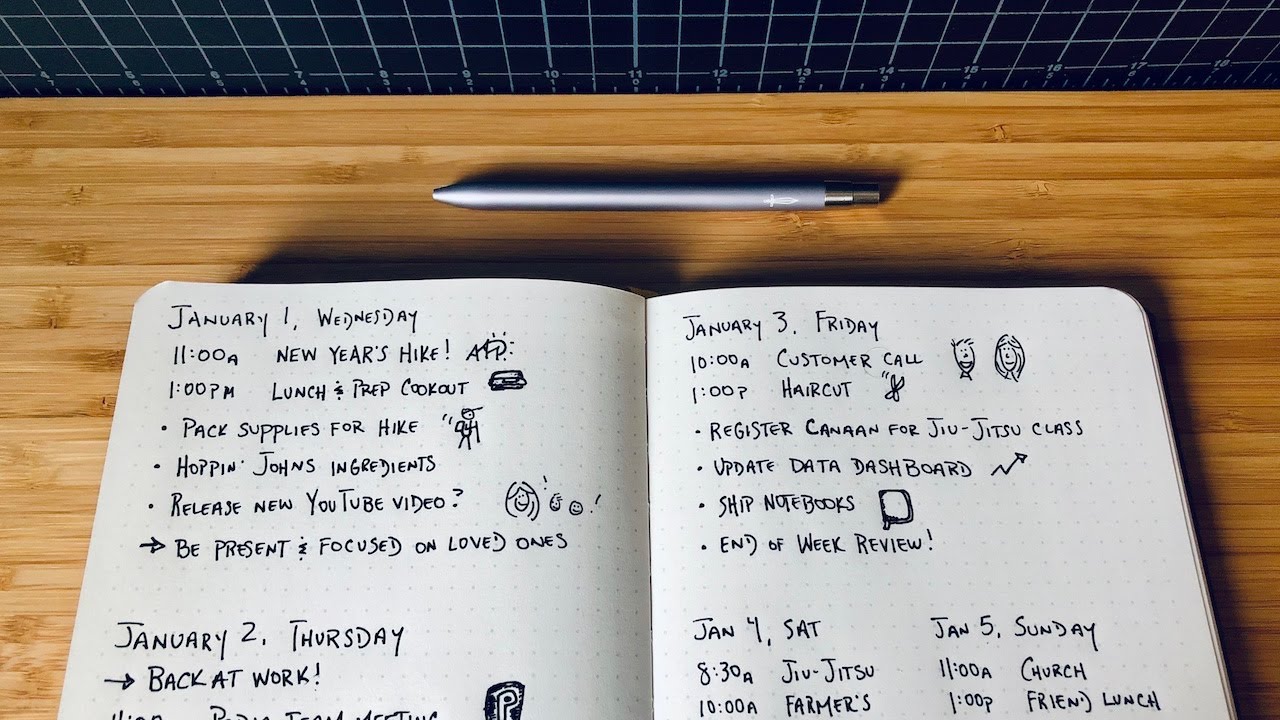 4 5 6 7 8 9 10 11 12 13 14 15 16 17 18
JANUARY 1, WEDNESDAY
11:00A NEW YEAR'S HIKE!
1:00PM LUNCH & PREP COOKOUT
• PACK SUPPLIES FOR HIKE
• HOPPIN' JOHNS INGREDIENTS
• RELEASE NEW YOUTUBE VIDEO?
→ BE PRESENT & FOCUSED ON LOVED ONES
JANUARY 2, THURSDAY
→ BACK AT WORK!
PODIA TEAM MEETING
P
JANUARY 3, FRIDAY
10:00A CUSTOMER CALL
1:00P HAIRCUT
• REGISTER CANAAN FOR JIU-JITSU CLASS
• UPDATE DATA DASHBOARD
• SHIP NOTEBOOKS
• END OF WEEK REVIEW!
JAN 4, SAT
8:30A JIU-JITSU
10:00A FARMER'S
JAN 5, SUNDAY
11:00A CHURCH
1:00P FRIEND LUNCH